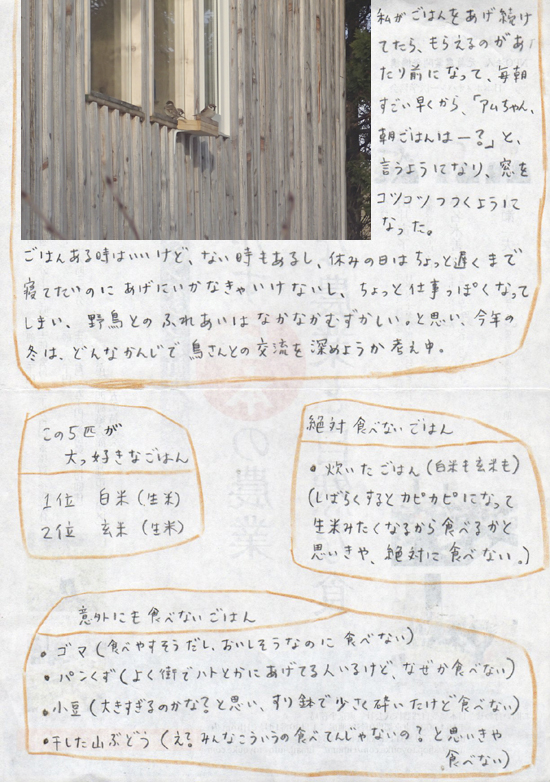 私がごはんをあげ続け
てたら、もらえるのがあ
たり前になって、毎朝
すごい早くから、「アムちゃん、
朝ごはんはー?」と、
言うようになり、窓を
コツコツつつくように
なった。
ごはんある時はいいけど、ない時もあるし、休みの日はちょっと遅くまで
寝てたいのにあげにいかなきゃいけないし、ちょっと仕事っぽくなって
しまい、野鳥とのふれあいはなかなかむずかしい。と思い、今年の
冬は、どんなかんじで鳥さんとの交流を深めようか考え中。
この5匹が
大っ好きなごはん
1位 白米(生米)
2位 玄米(生米)
絶対食べないごはん
• 炊いたごはん(白米も玄米も)
(しばらくするとカピカピになって
生米みたくなるから食べるかと
思いきや、絶対に食べない。)
意外にも食べないごはん
• ゴマ(食べやすそうだし、おいしそうなのに食べない)
• パンくず(よく街でハトとかにあげてる人いるけど、なぜか食べない)
• 小豆(大きすぎるのかな?と思い、すり鉢で少さく砕いたけど食べない)
• 干した山ぶどう(え?みんなこういうの食べてんじゃないの?と思いきや
食べない)